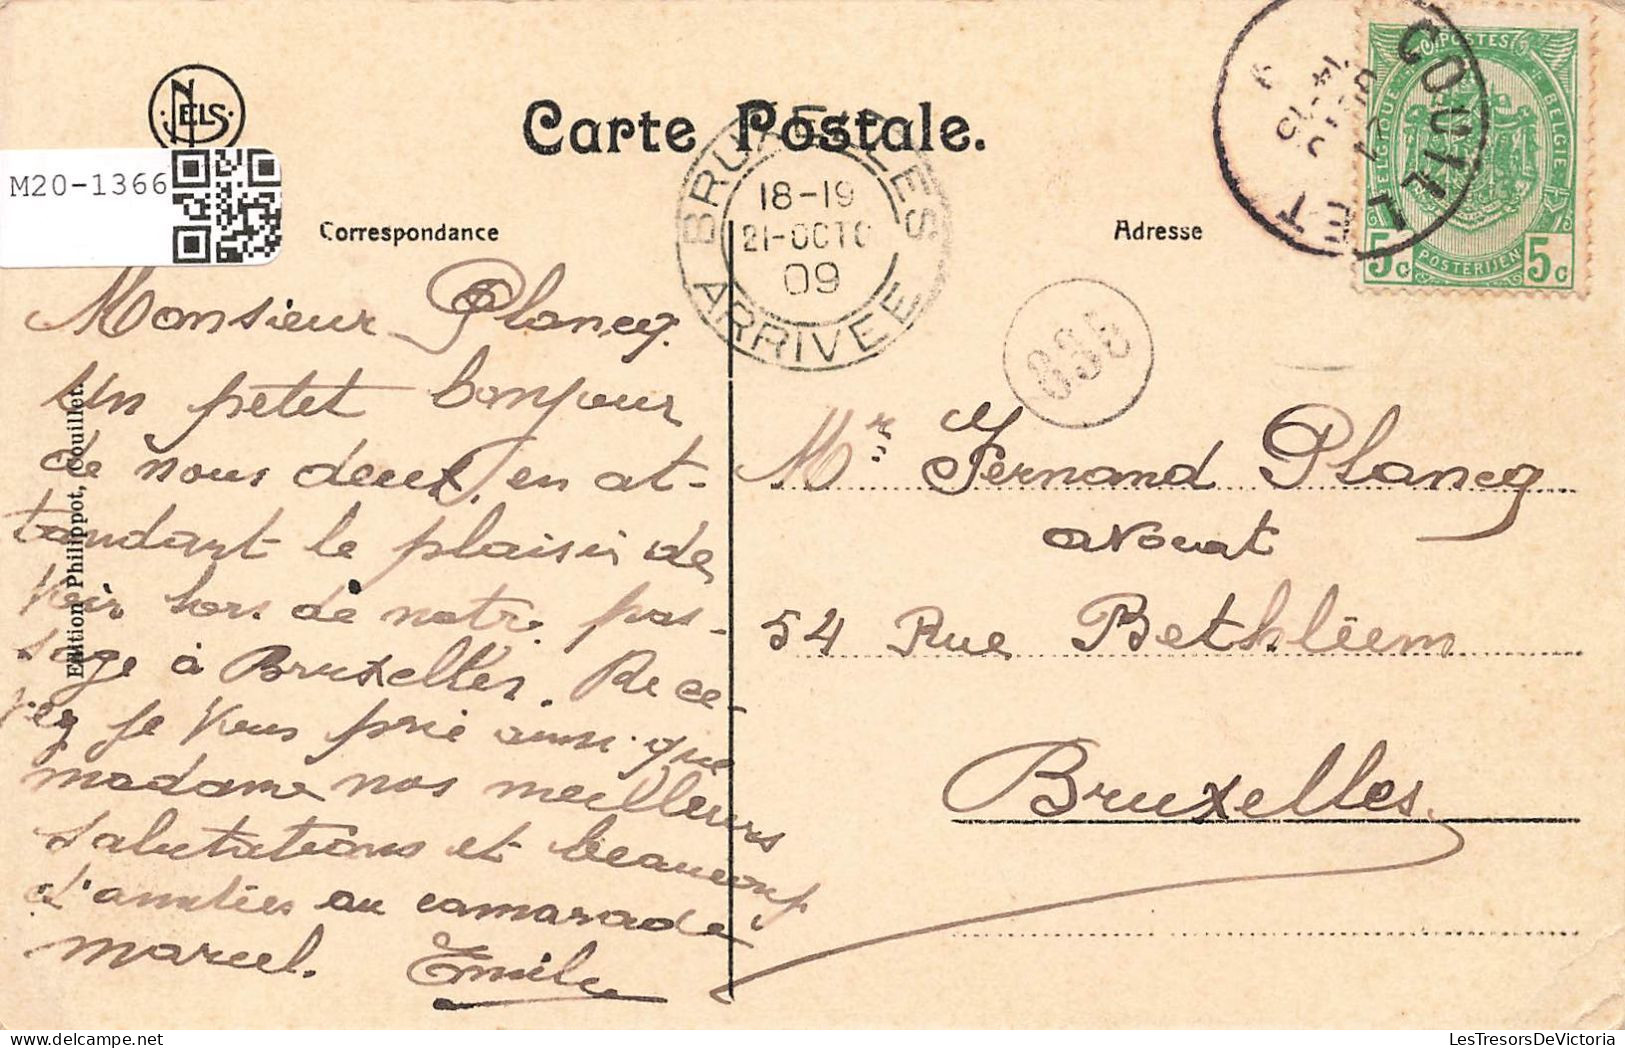 NELS
M20-1366
Carte Postale.
BRUXELLES
18-19
21-OCTO
09
ARRIVEE
COUILLET
POSTES
BELGIQUE
BELGIE
5c POSTERIJEN 5c
Correspondance
Adresse
Edition Philippot, Couillet.
Monsieur Plancq.
Un petit bonjour
de nous deux, en at-
tandant le plaisir de
voir lors de notre pas-
sage à Bruxelles. Rece-
vez je vous prie ainsi que
madame nos meilleurs
salutations et beaucoup
d'amitiés au camarade
Marcel. Emile
335
Mr Fernand Plancq
avocat
54 Rue Bethléem
Bruxelles
LesTresorsDeVictoria